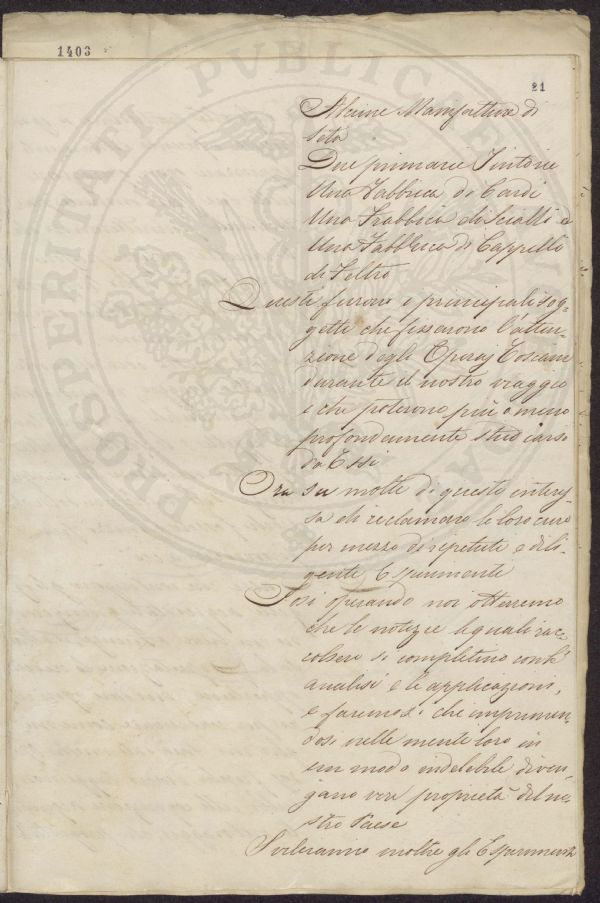 1403
21
PROSPERITATI PUBLICAE
Alcune Manifatture di
Seta
Due primarie Tintorie
Una Fabbrica di Cardi
Una Fabbrica di Scialli e
Una Fabbrica di Cappello
di Feltro
Questi furono i principali sog-
getti che fissarono l'atten-
zione degli Operaj Toscani
durante il nostro viaggio
e che poterono più o meno
profondamente studiarsi
da Essi
Ora su molti di questi interes-
sa di reclamare le loro cure
per mezzo di repetute e dili-
genti Esperimenti
Così operando noi otterremo
che le notizie le quali rac-
colsero si completino con l'
analisi e le applicazioni,
e faremo sì che imprimen-
dosi nelle menti loro in
un modo indelebile diven-
gano vera proprietà del no-
stro Paese
inoltre gli Esperimenti